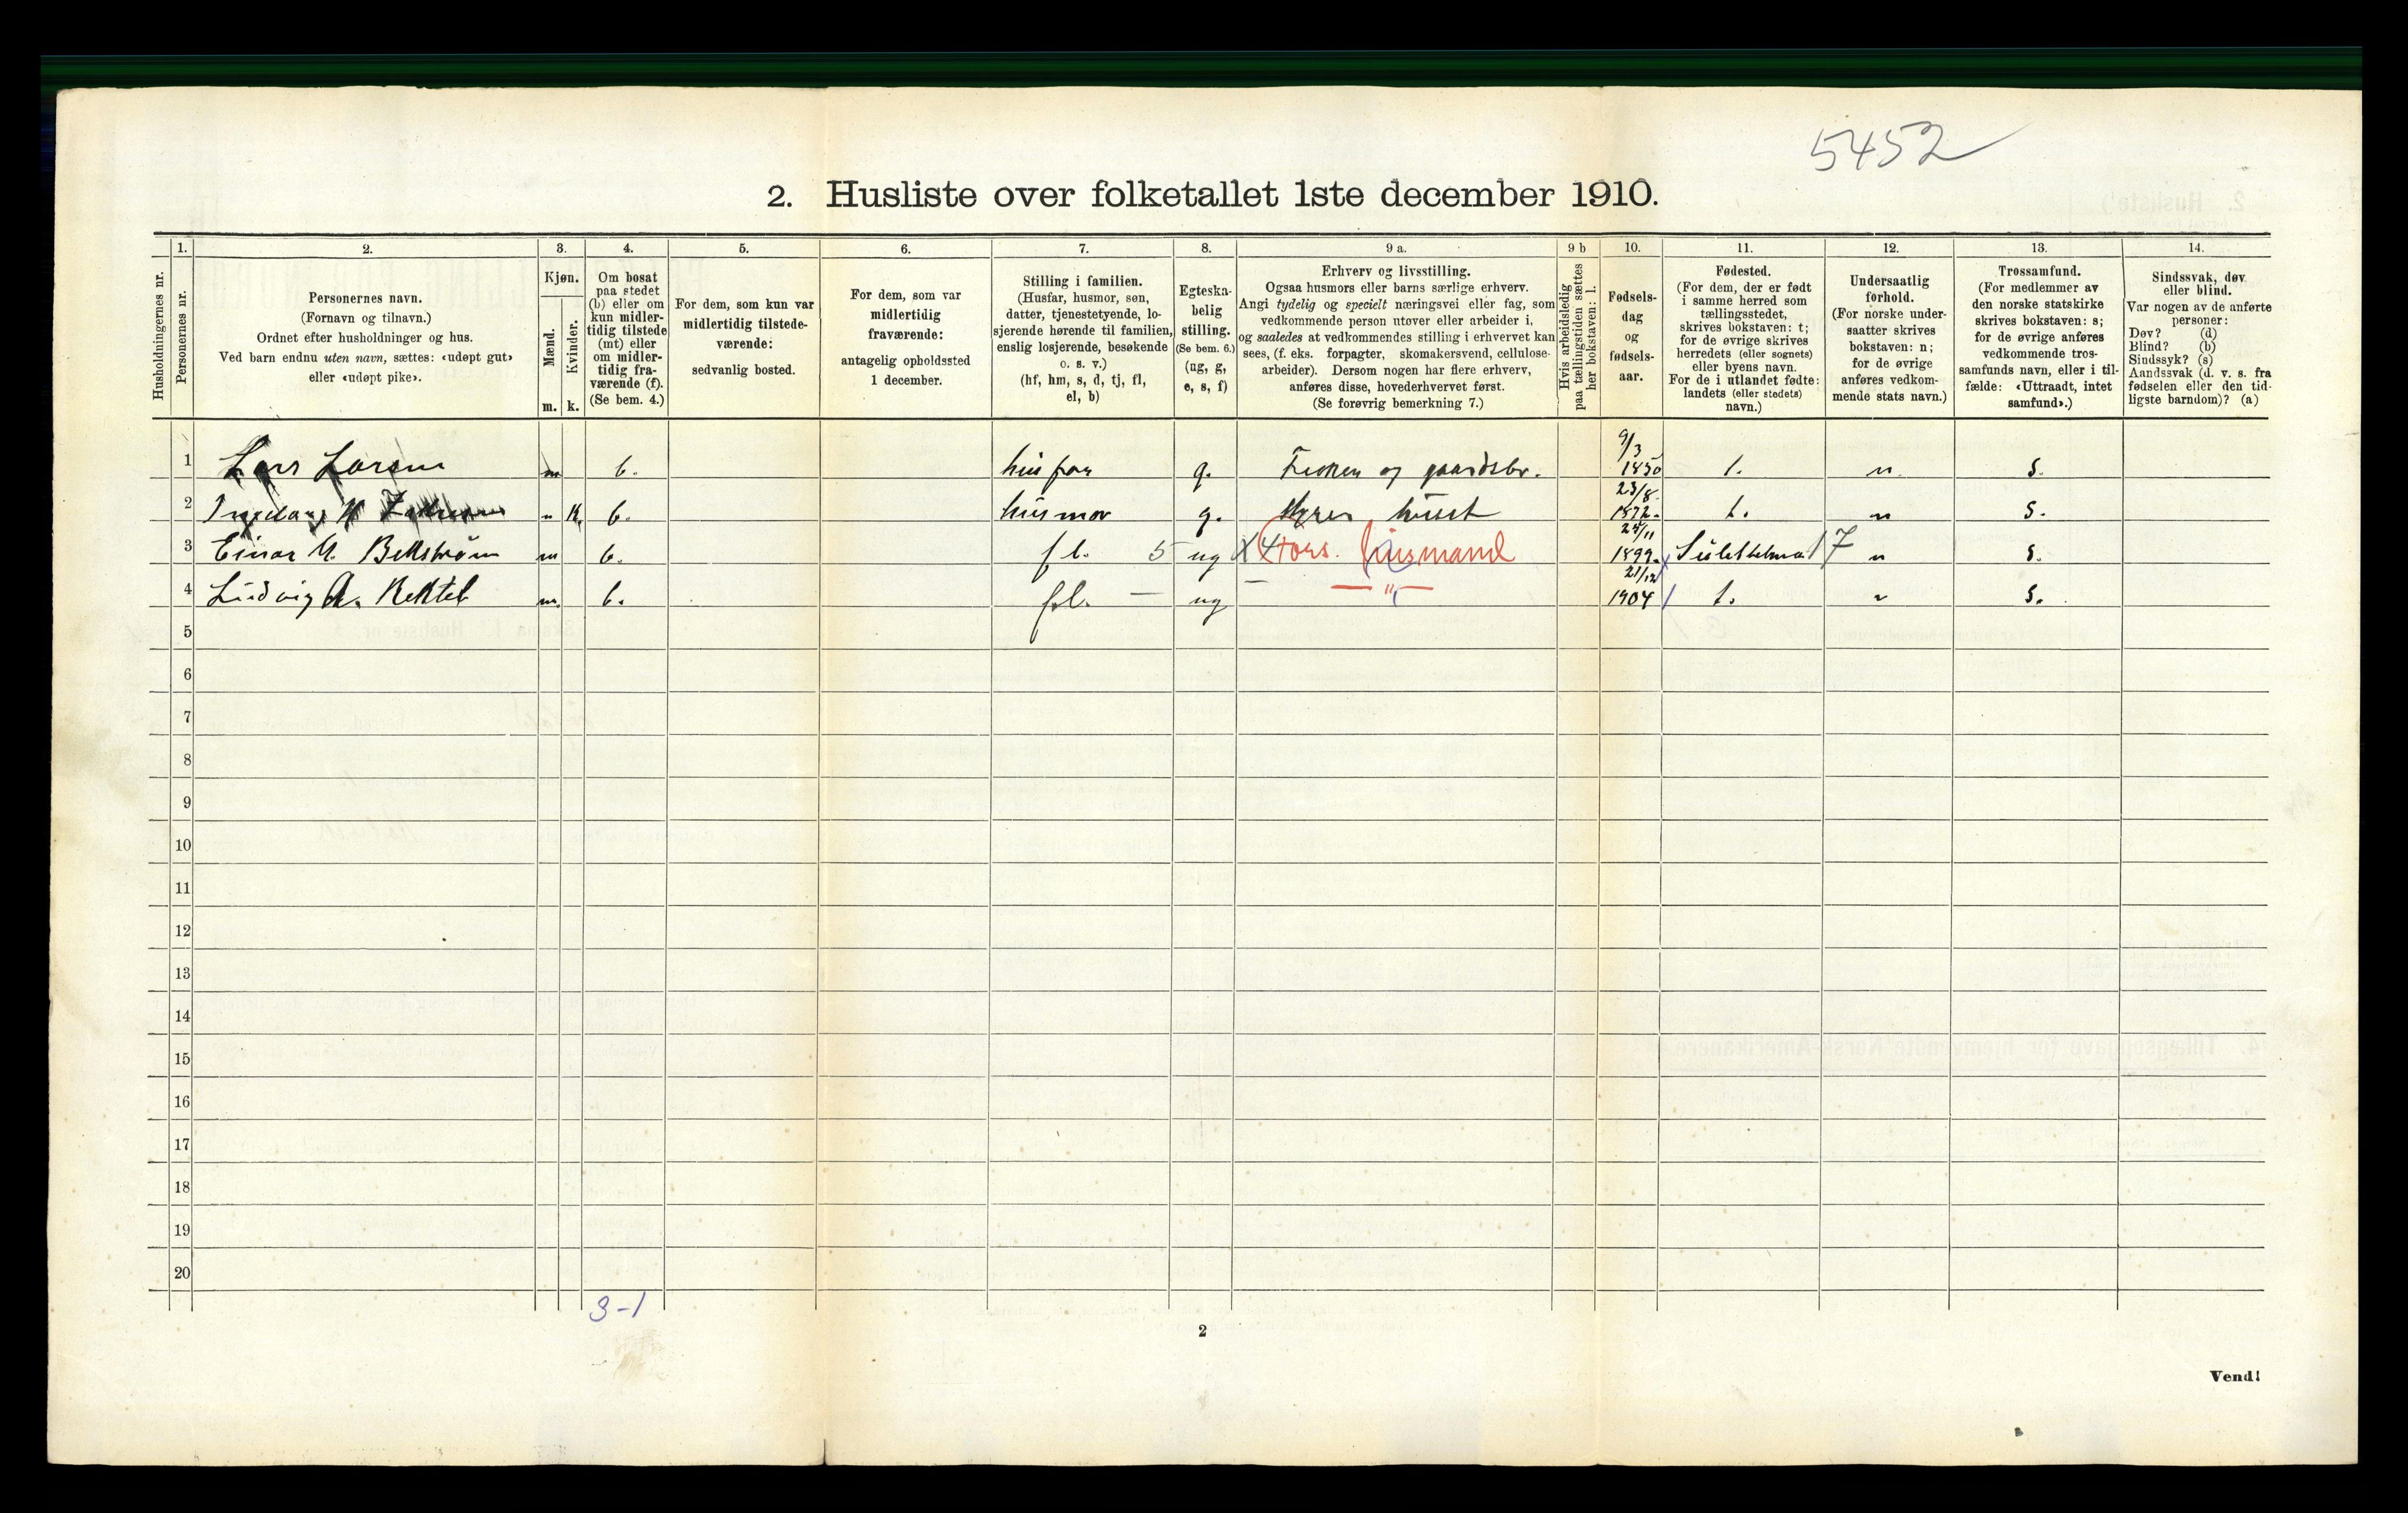 5452
2. Husliste over folketallet 1ste december 1910.
Husholdningernes nr.
1.
Personernes nr.
2.
Personernes navn.
(Fornavn og tilnavn.)
Ordnet efter husholdninger og hus.
Ved barn endnu uten navn, sættes: «udøpt gut»
eller «udøpt pike».
3.
Kjøn.
Mænd.
Kvinder.
m. k.
4.
Om bosat
paa stedet
(b) eller om
kun midler-
tidig tilstede
(mt) eller
om midler-
tidig fra-
værende (f).
(Se bem. 4.)
5.
For dem, som kun var
midlertidig tilstede-
værende:
sedvanlig bosted.
6.
For dem, som var
midlertidig
fraværende:
antagelig opholdssted
1 december.
7.
Stilling i familien.
(Husfar, husmor, søn,
datter, tjenestetyende, lo-
sjerende hørende til familien,
enslig losjerende, besøkende
o. s. v.)
(hf, hm, s, d, tj, fl,
el, b)
8.
Egteska-
belig
stilling.
(Se bem. 6.)
(ug, g,
e, s, f)
9 a.
Erhverv og livsstilling.
Ogsaa husmors eller barns særlige erhverv.
Angi tydelig og specielt næringsvei eller fag, som
vedkommende person utøver eller arbeider i,
og saaledes at vedkommendes stilling i erhvervet kan
sees, (f. eks. forpagter, skomakersvend, cellulose-
arbeider). Dersom nogen har flere erhverv,
anføres disse, hovederhvervet først.
(Se forøvrig bemerkning 7.)
9 b
Hvis arbeidsledig
paa tællingstiden sættes
her bokstaven: l.
10.
Fødsels-
dag
og
fødsels-
aar.
11.
Fødested.
(For dem, der er født
i samme herred som
tællingsstedet,
skrives bokstaven: t;
for de øvrige skrives
herredets (eller sognets)
eller byens navn.
For de i utlandet fødte:
landets (eller stedets)
navn.)
12.
Undersaatlig
forhold.
(For norske under-
saatter skrives
bokstaven: n;
for de øvrige
anføres vedkom-
mende stats navn.)
13.
Trossamfund.
(For medlemmer av
den norske statskirke
skrives bokstaven: s;
for de øvrige anføres
vedkommende tros-
samfunds navn, eller i til-
fælde: «Uttraadt, intet
samfund».)
14.
Sindssvak, døv
eller blind.
Var nogen av de anførte
personer:
Døv? (d)
Blind? (b)
Sindssyk? (s)
Aandssvak (d. v. s. fra
fødselen eller den tid-
ligste barndom)? (a)
1 Lars Larsen m b. husfar g. og gaardsbr. 9/3 1850 t. n. s.
2 k. b. husmor g. huset 23/8 1872. t. n s.
3 Einar M. Bekstrøm m b. fl. 5 ug X4 Fors. husmand 24/11 1899. 17 n s.
4 Ludvig A. m. b. fl. — ug — " — 21/12 1904 t. n s.
5
6
7
8
9
10
11
12
13
14
15
16
17
18
19
20
3-1
2
Vend!